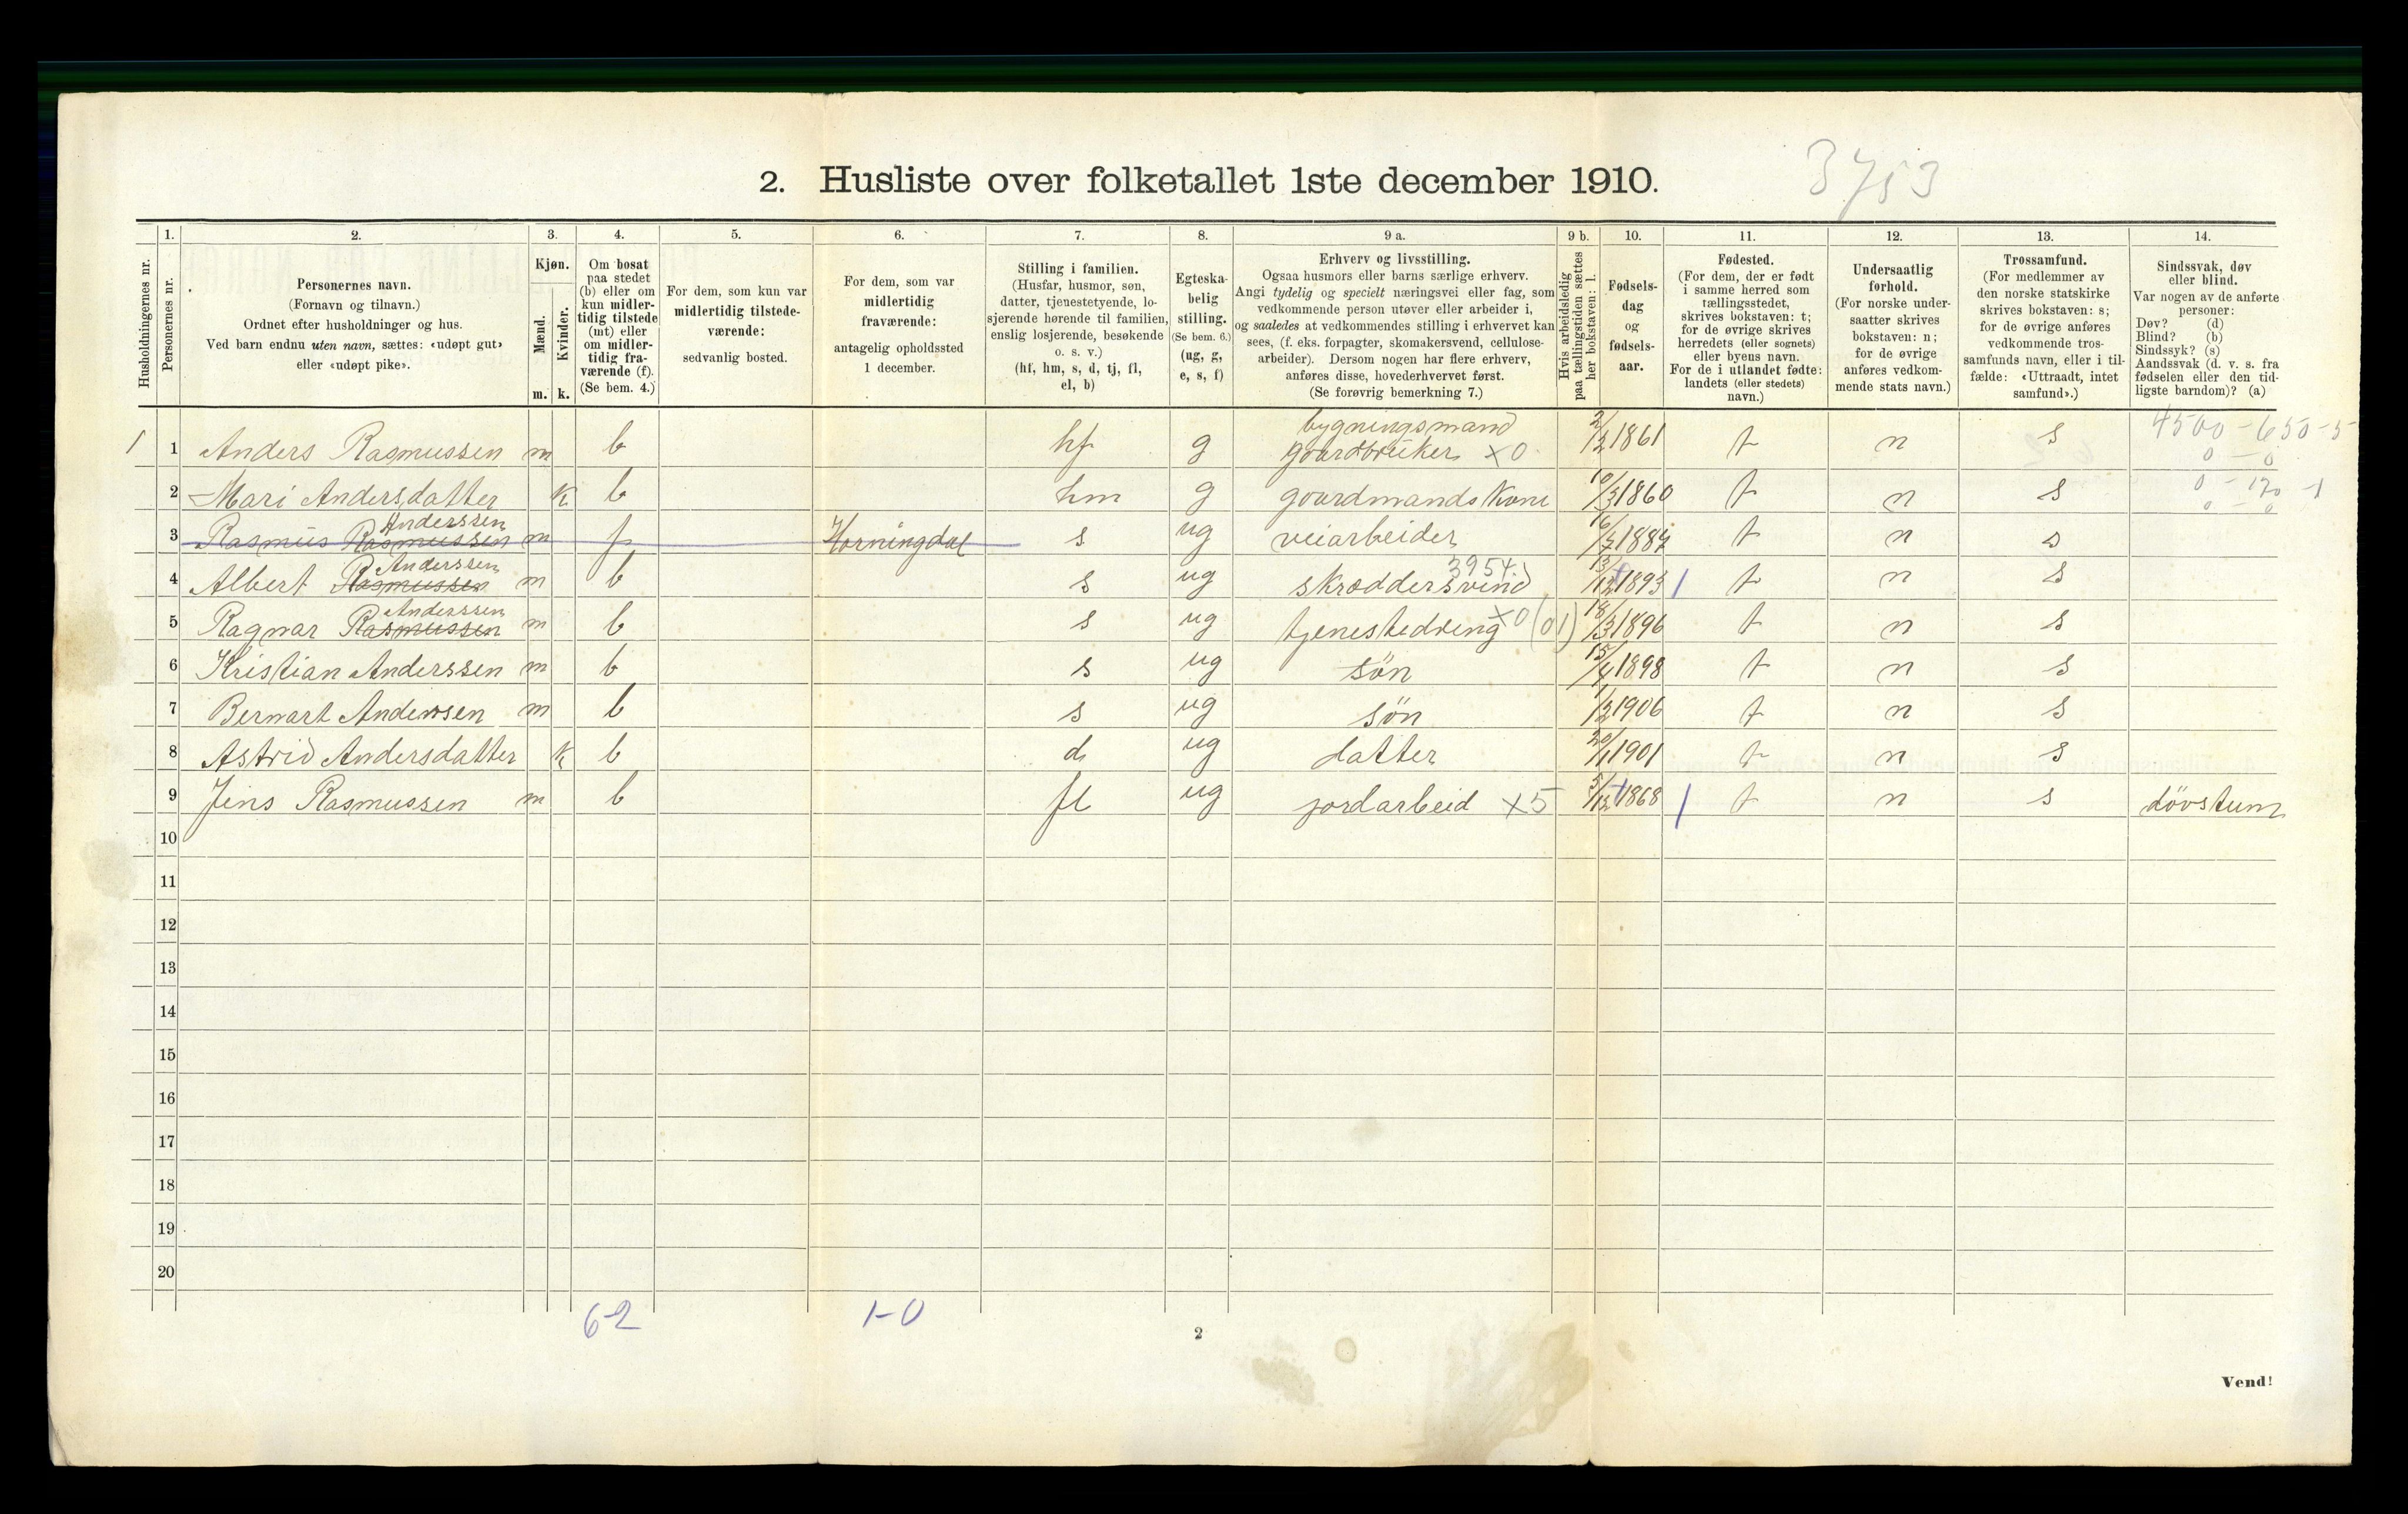 3753
2. Husliste over folketallet 1ste december 1910.
1. 2. 3. 4. 5. 6. 7. 8. 9 a. 9 b. 10. 11. 12. 13. 14.
Husholdningernes nr.
Personernes nr.
Personernes navn.
(Fornavn og tilnavn.)
Ordnet efter husholdninger og hus.
Ved barn endnu uten navn, sættes: «udøpt gut»
eller «udøpt pike».
Kjøn.
Mænd.
Kvinder.
m. k.
Om bosat
paa stedet
(b) eller om
kun midler-
tidig tilstede
(mt) eller
om midler-
tidig fra-
værende (f).
(Se bem. 4.)
For dem, som kun var
midlertidig tilstede-
værende:
sedvanlig bosted.
For dem, som var
midlertidig
fraværende:
antagelig opholdssted
1 december.
Stilling i familien.
(Husfar, husmor, søn,
datter, tjenestetyende, lo-
sjerende hørende til familien,
enslig losjerende, besøkende
o. s. v.)
(hf, hm, s, d, tj, fl,
el, b)
Egteska-
belig
stilling.
(Se bem. 6.)
(ug, g,
e, s, f)
Erhverv og livsstilling.
Ogsaa husmors eller barns særlige erhverv.
Angi tydelig og specielt næringsvei eller fag, som
vedkommende person utøver eller arbeider i,
og saaledes at vedkommendes stilling i erhvervet kan
sees, (f. eks. forpagter, skomakersvend, cellulose-
arbeider). Dersom nogen har flere erhverv,
anføres disse, hovederhvervet først.
(Se forøvrig bemerkning 7.)
Hvis arbeidsledig
paa tællingstiden sættes
her bokstaven: l.
Fødsels-
dag
og
fødsels-
aar.
Fødested.
(For dem, der er født
i samme herred som
tællingsstedet,
skrives bokstaven: t;
for de øvrige skrives
herredets (eller sognets)
eller byens navn.
For de i utlandet fødte:
landets (eller stedets)
navn.)
Undersaatlig
forhold.
(For norske under-
saatter skrives
bokstaven: n;
for de øvrige
anføres vedkom-
mende stats navn.)
Trossamfund.
(For medlemmer av
den norske statskirke
skrives bokstaven: s;
for de øvrige anføres
vedkommende tros-
samfunds navn, eller i til-
fælde: «Uttraadt, intet
samfund».)
Sindssvak, døv
eller blind.
Var nogen av de anførte
personer:
Døv? (d)
Blind? (b)
Sindssyk? (s)
Aandssvak (d. v. s. fra
fødselen eller den tid-
ligste barndom)? (a)
bygningsmand 4500 - 650 - 5
1 1 Anders Rasmussen m b hf g gaardbruker x0 2/2 1861 t n s 0 - 0
2 Mari Andersdatter k b hm g gaardmands kone 10/3 1860 t n s 0 - 170 - 1
0 - 0
Anderssen
3 Rasmus Rasmussen m f Horningdal s ug veiarbeider 16/7 1887 t n s
Anderssen 3954
4 Albert Rasmussen m b s ug skræddersvend 13/12 1893 t n s
Anderssen
5 Ragnar Rasmussen m b s ug tjenestedreng x0 (01) 18/3 1896 t n s
6 Kristian Anderssen m b s ug søn 15/4 1898 t n s
7 Bernart Andersen m b s ug søn 1/2 1906 t n s
8 Astrid Andersdatter k b d ug datter 20/1 1901 t n s
9 Jens Rasmussen m b fl ug jordarbeid x5 5/12 1868 t n s dövstum
10
11
12
13
14
15
16
17
18
19
20
6-2 1-0
2
Vend!